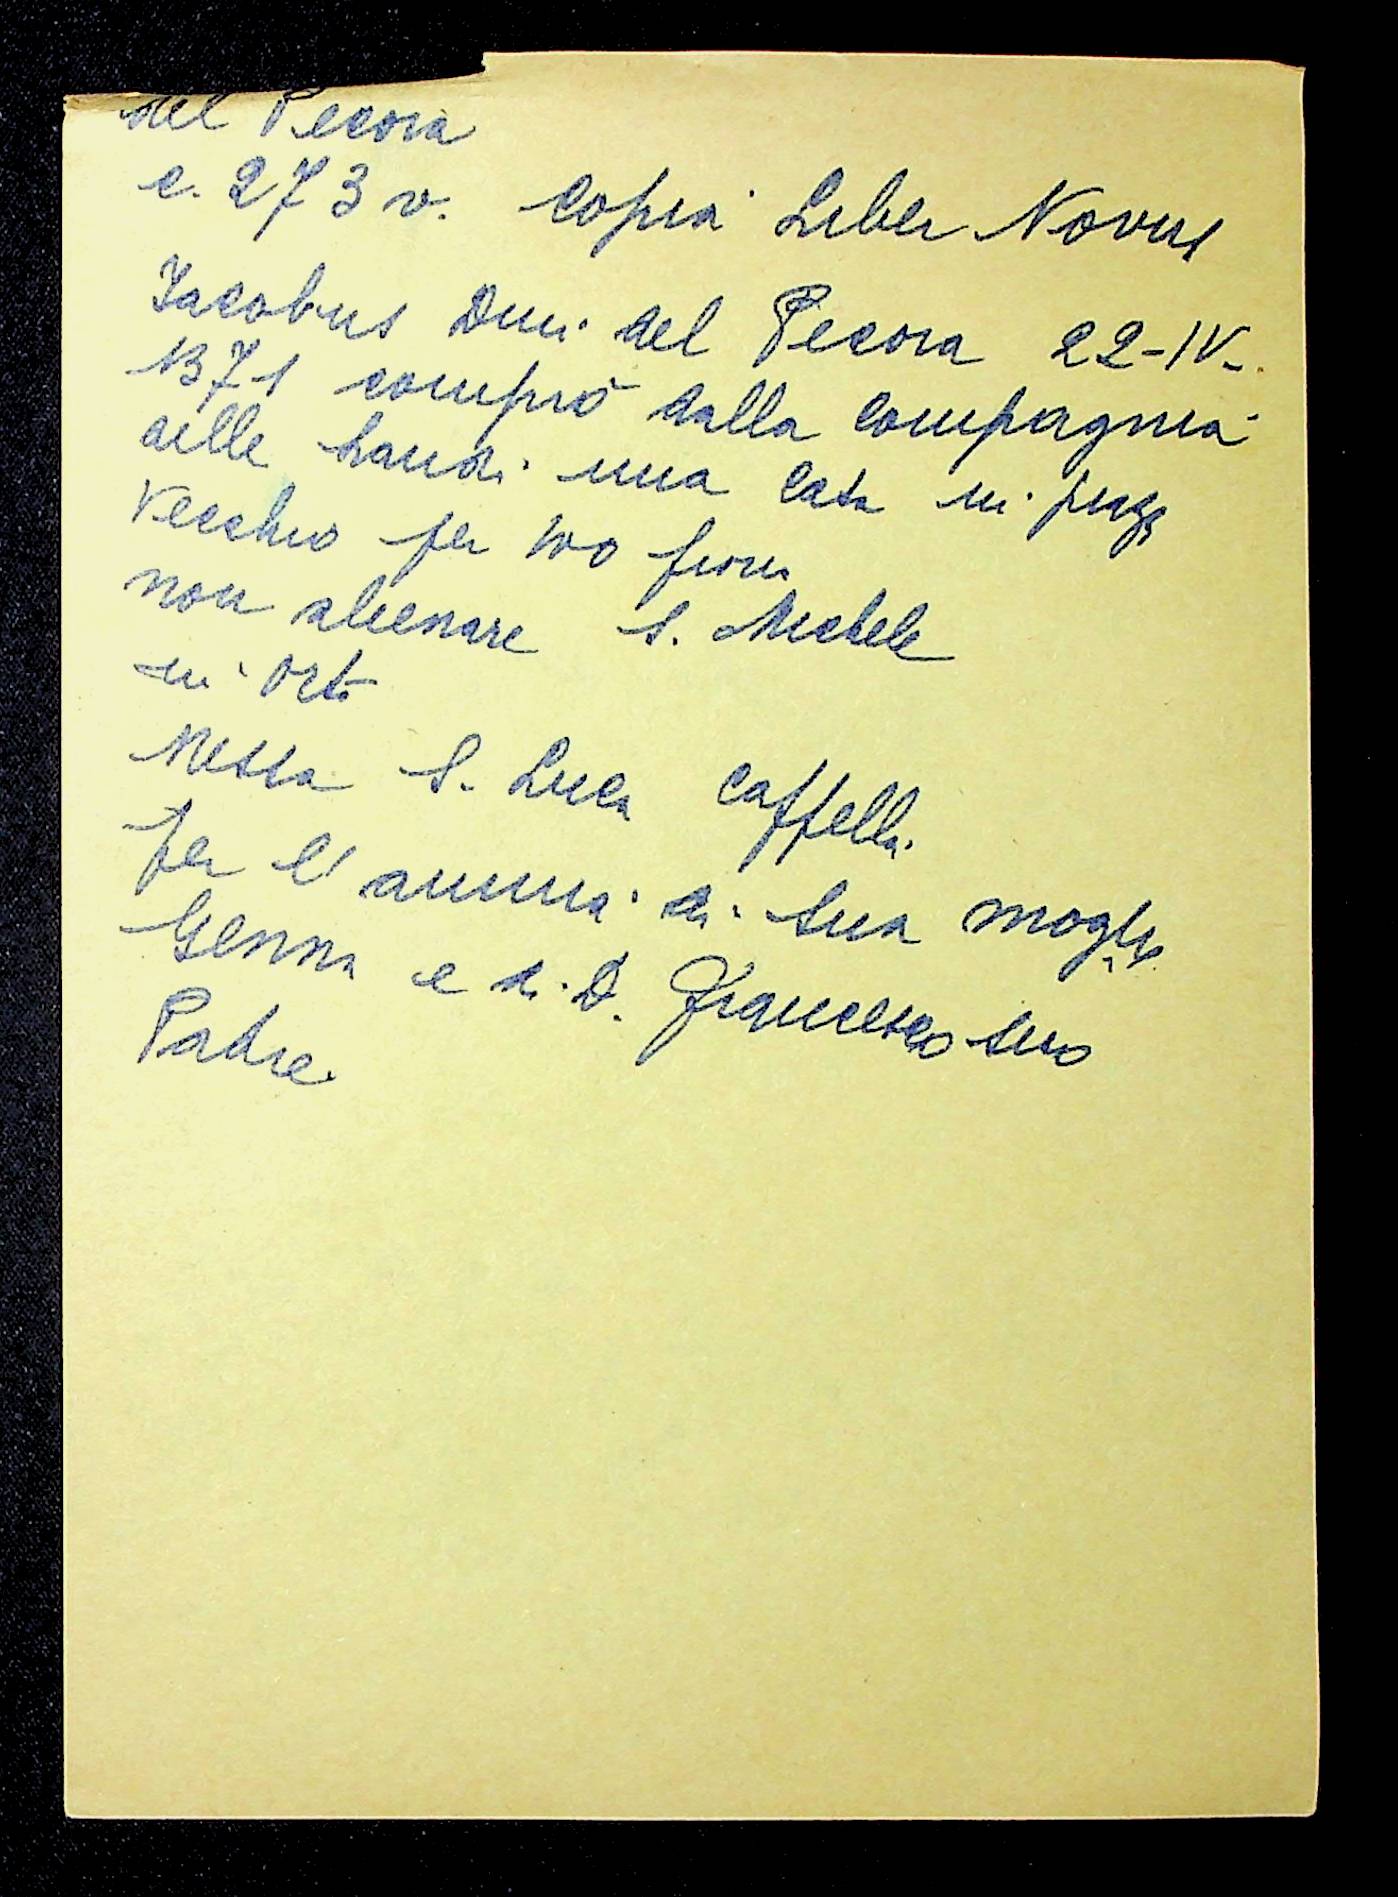 del Pecora
c. 273 v. copia Liber Novus
Jacobus Dni del Pecora 22-IV-
1371 comprò dalla compagnia
delle Laudi una casa in piazz
Vecchio per 100 fiori
non alienare S. Michele
in Orto
Messa S. Luca cappella
per l'anima di sua moglie
Genna e di D. Francesco suo
Padre